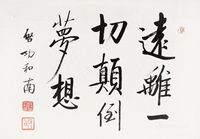 遠離一
切顛倒
夢想
啓功和南